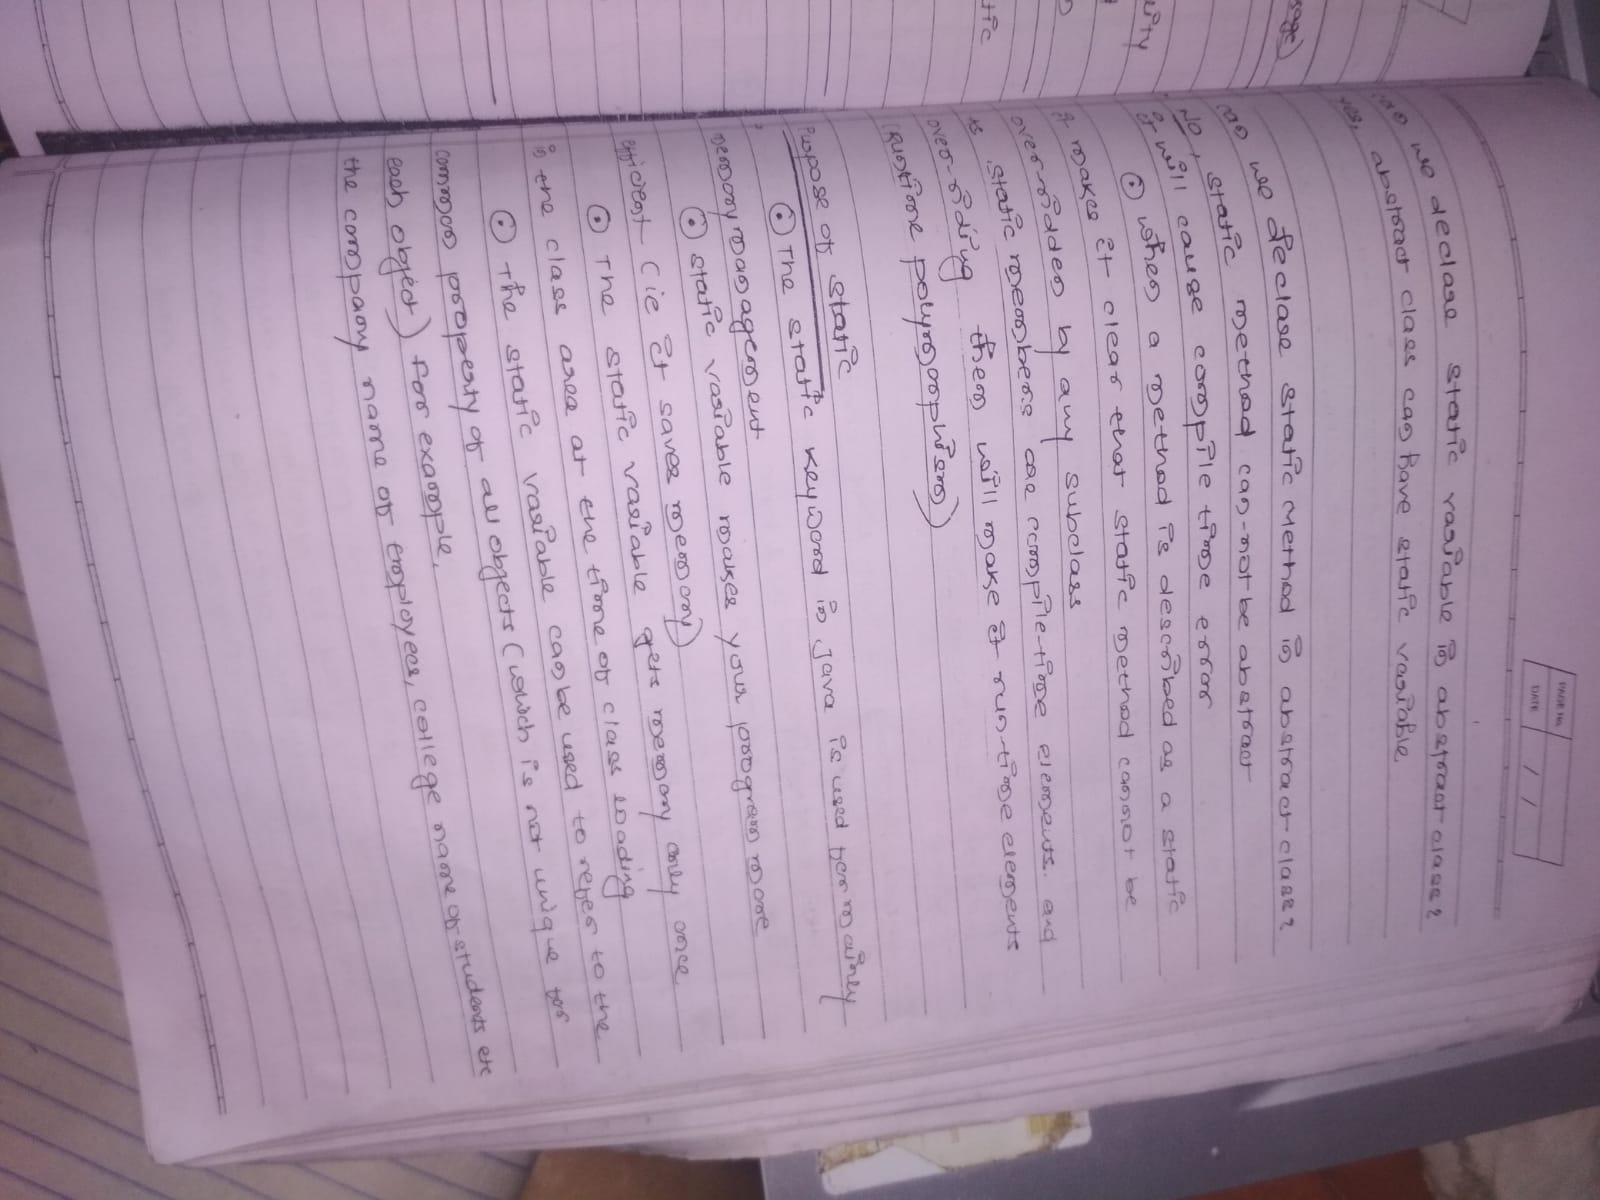 PAGE No.
DATE / /
can we declare static variable in abstract class?
yes, abstract class can have static variable
can we declare static method in abstract class?
No, static method can-not be abstract
It will cause compile time error
⊙ when a method is described as a static
it makes it clear that static method cannot be
over-ridden by any subclass
static members are compile-time elements. and
over-riding them will make it run-time elements
(Runtime polymorphism)
Purpose of static
⊙ The static keyword in java is used for mainly
memory management
⊙ static variable makes your program more
efficient (ie it saves memory)
⊙ The static variable gets memory only once
in the class area at the time of class loading
⊙ The static variable can be used to refer to the
common property of all objects (which is not unique for
each object) for example,
the company name of employees, college name of students etc
sage)
ity
tic